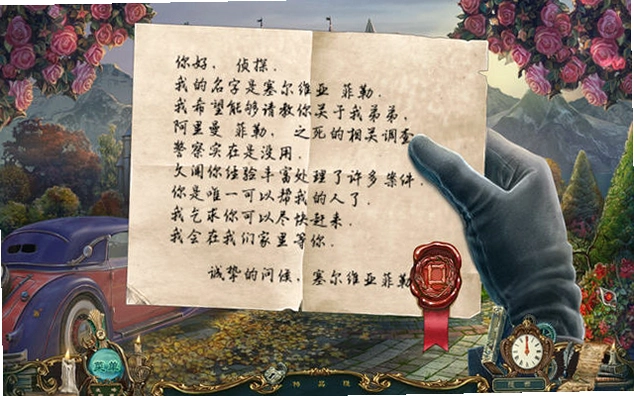 你好, 侦探.
我的名字是塞尔维亚 菲勒.
我希望能够请教你关于我弟弟,
阿里曼 菲勒, 之死的相关调查
警察实在是没用.
久闻你经验丰富处理了许多案件.
你是唯一可以帮我的人了.
我乞求你可以尽快赶来.
我会在我们家里等你.
诚挚的问候, 塞尔维亚菲勒
菜单